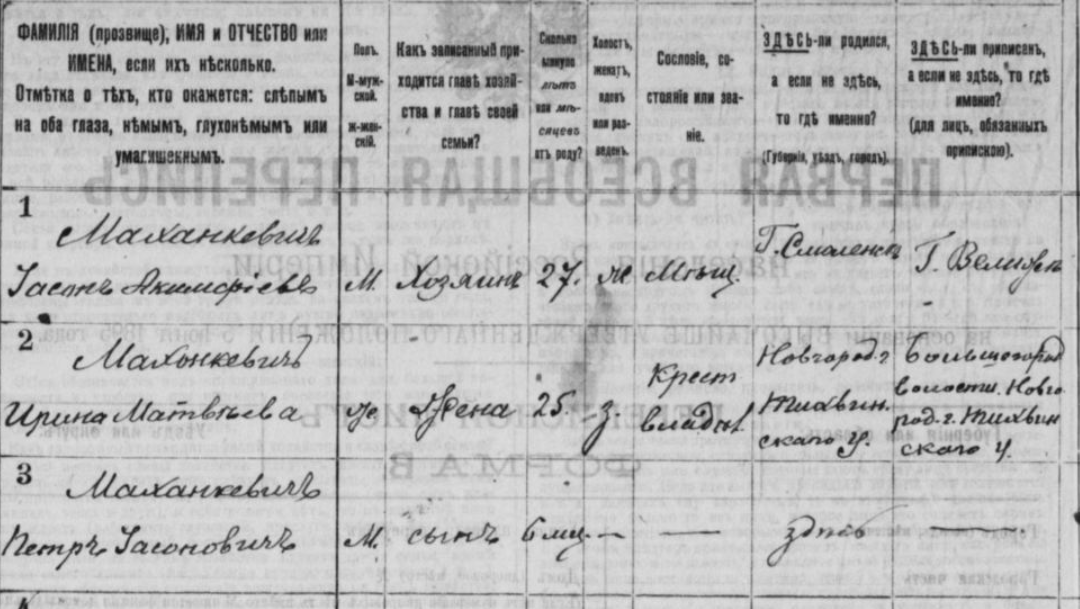 ФАМИЛІЯ (прозвище), ИМЯ и ОТЧЕСТВО или
ИМЕНА, если ихъ нѣсколько.
Отмѣтка о тѣхъ, кто окажется: слѣпымъ
на оба глаза, нѣмымъ, глухонѣмымъ или
умалишеннымъ.
Полъ.
М-муж-
ской.
ж-жен-
скій.
Какъ записанный при-
ходится главѣ хозяй-
ства и главѣ своей
семьи?
Сколько
минуло
лѣтъ
или мѣ-
сяцевъ
отъ роду?
Холостъ,
женатъ,
вдовъ
или раз-
веденъ.
Сословіе, со-
стояніе или зва-
ніе.
ЗДѢСЬ-ли родился,
а если не здѣсь,
то гдѣ именно?
(Губернія, уѣздъ, городъ).
ЗДѢСЬ-ли приписанъ,
а если не здѣсь, то гдѣ
именно?
(для лицъ, обязанныхъ
припискою).
ПЕРВАЯ ВСЕОБЩАЯ ПЕРЕПИСЬ
населенія Россійской Имперіи
на основаніи ВЫСОЧАЙШЕ УТВЕРЖДЕННАГО ПОЛОЖЕНІЯ 5 Іюня 1895 года.
ПЕРЕПИСНОЙ ЛИСТЪ
ФОРМА В
1
Маханкевичъ
Іасонъ М. Хозяинъ 27. ж Мѣщ. Г. Смоленскъ Г.
2
Махонкевичъ
Ирина Матвѣева ж Жена 25. з. Крест
владѣл Новгород. г
Тихвин.
скаго у.
волости Новго
род. г. Тихвин
скаго у.
3
Маханкевичъ
Петръ Іасоновичъ М. сынъ 6 мц. — — здѣсь —